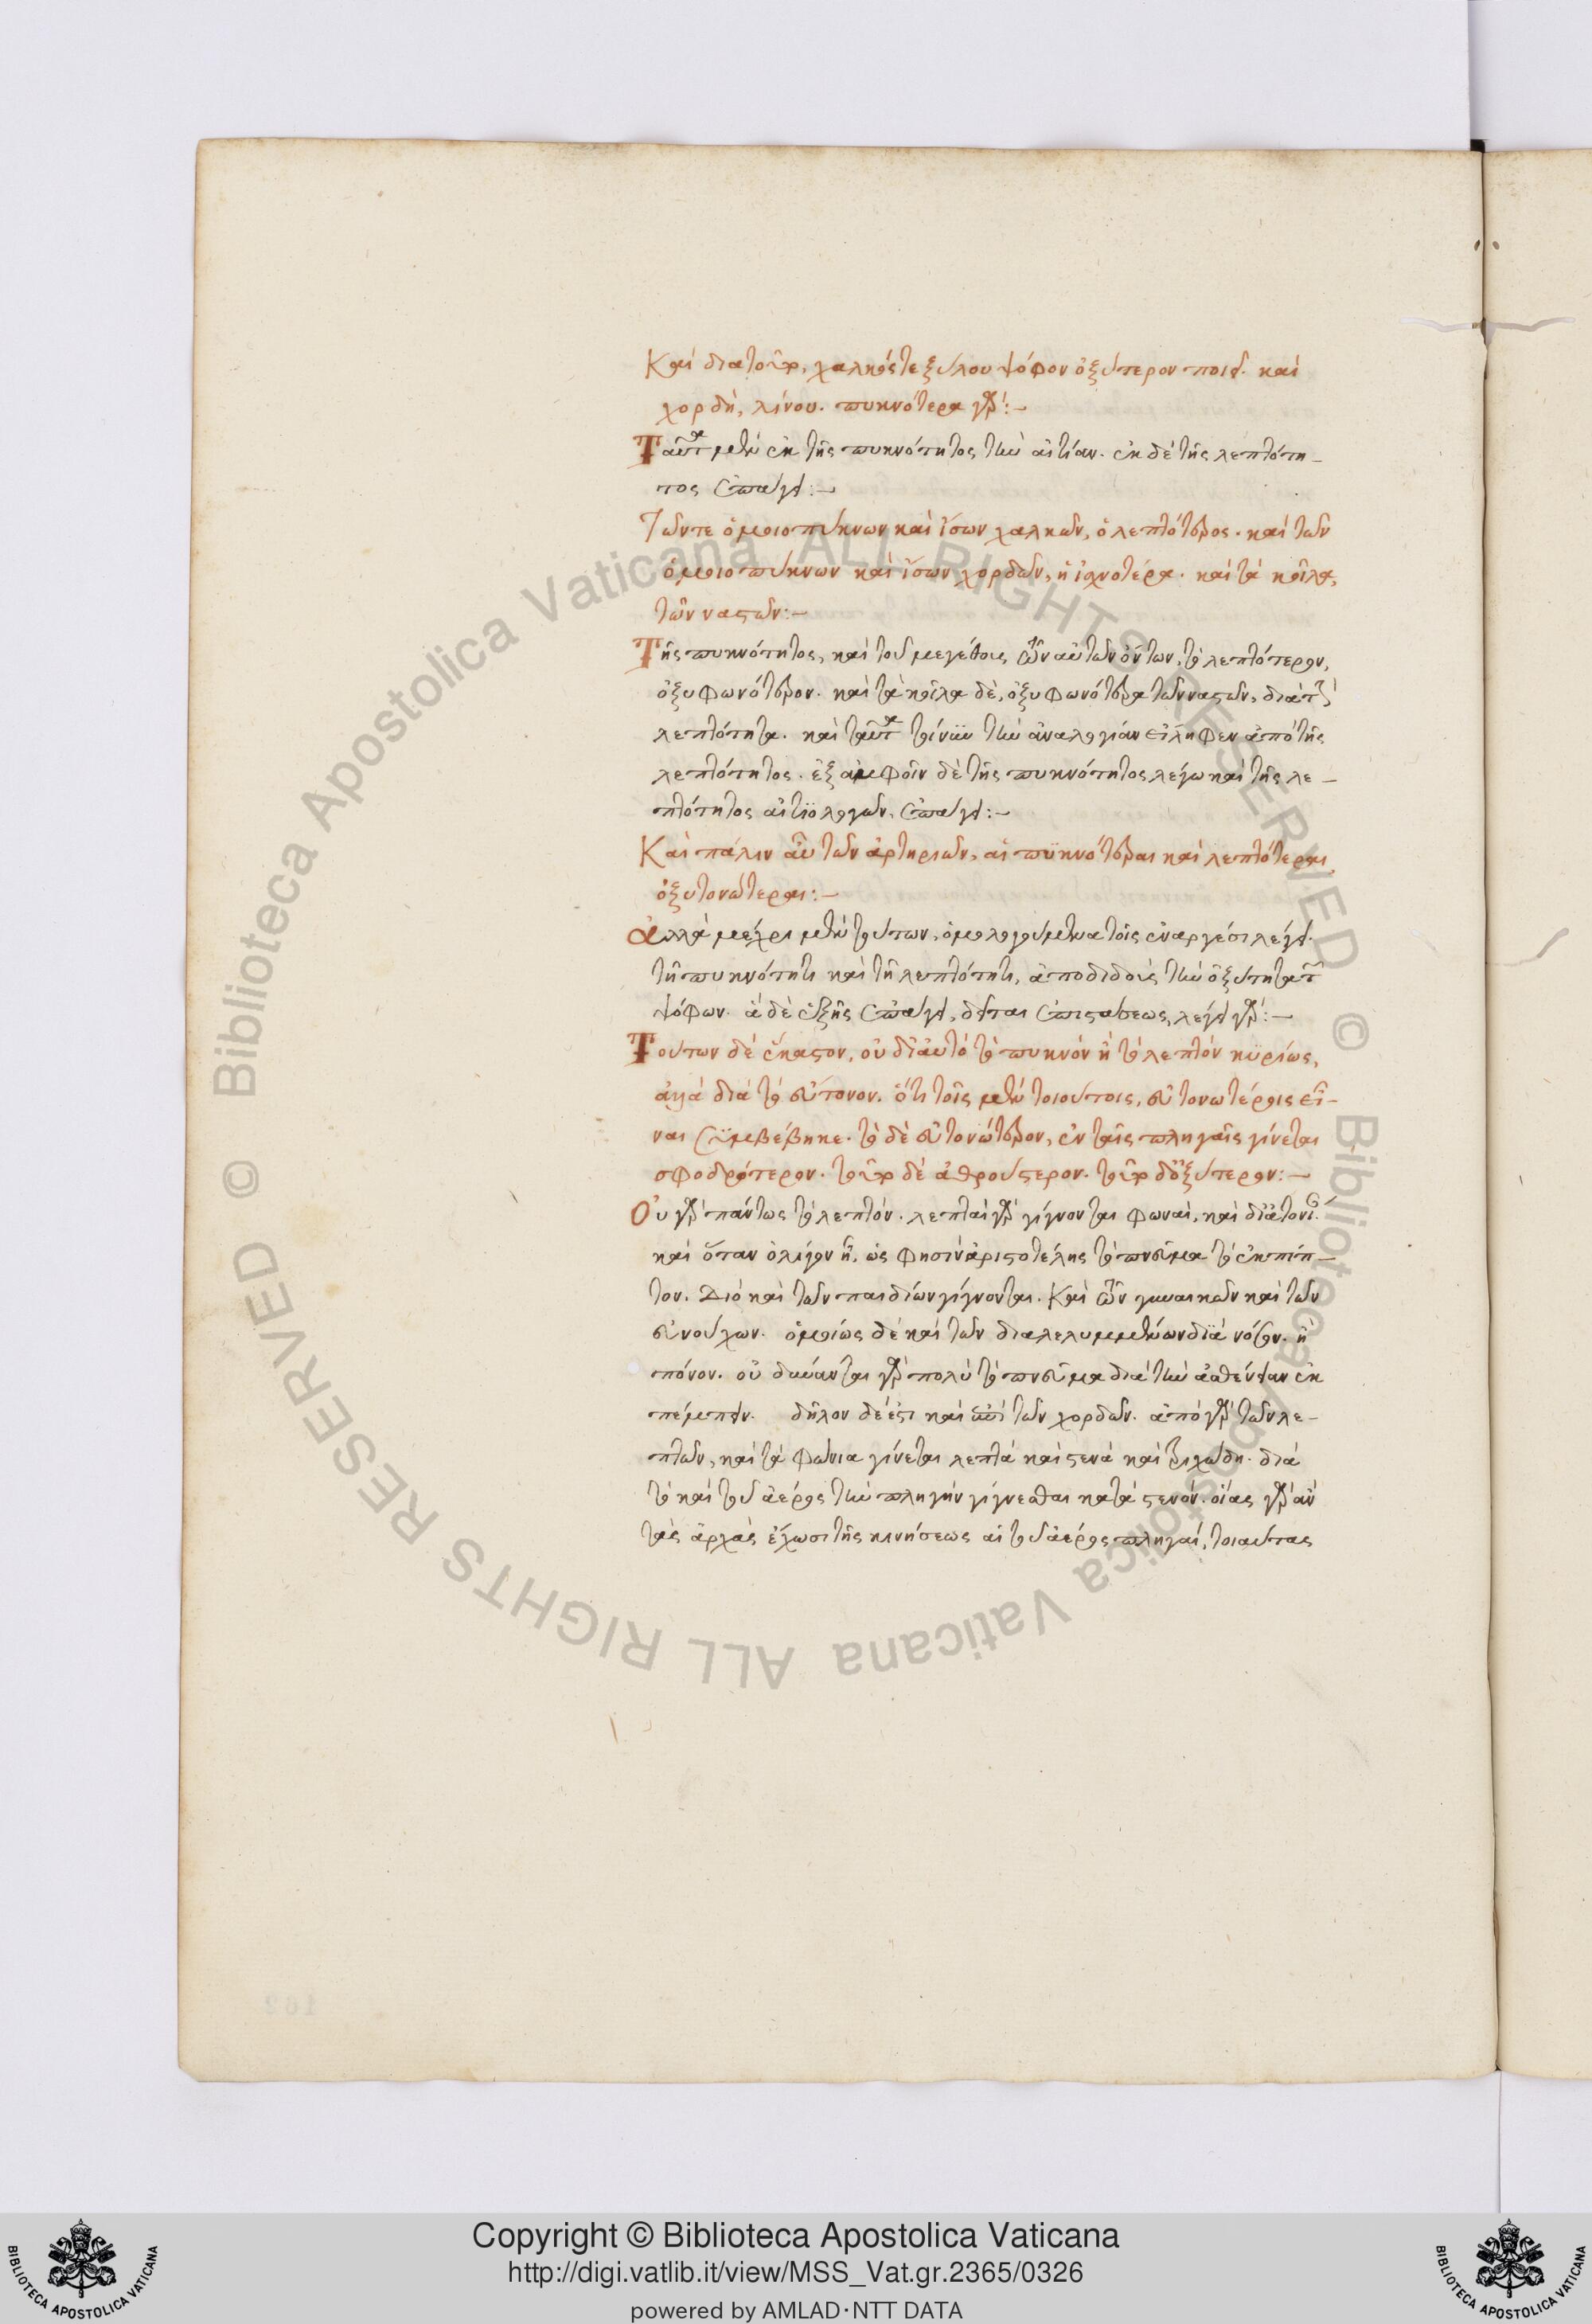 Καὶ διατοῦτο, χαλκός τε ξύλου ψόφον ὀξύτερον ποιεῖ. καὶ
χορδὴ, λίνου. πυκνότερα γάρ:–
Ταῦτα μὲν ἐκ τῆς πυκνότητος τὴν αἰτίαν. ἐκ δὲ τῆς λεπτότη–
τος ἐπάγει:–
Τῶν τε ὁμοιοπύκνων καὶ ἴσων χαλκῶν, ὁ λεπτότερος. καὶ τῶν
ὁμοιοπύκνων καὶ ἴσων χορδῶν, ἡ ἰσχνοτέρα. καὶ τὰ κοῖλα,
τῶν ναστῶν:–
Τῆς πυκνότητος, καὶ τοῦ μεγέθους τῶν αὐτῶν ὄντων, τὸ λεπτότερον,
ὀξυφωνότερον. καὶ τὰ κοῖλα δὲ, ὀξυφωνότερα τῶν ναστῶν, διὰ τὴν
λεπτότητα. καὶ ταῦτα τοίνυν τὴν ἀναλογίαν εἴληφεν ἀπὸ τῆς
λεπτότητος. ἐξ ἀμφοῖν δὲ τῆς πυκνότητος λέγω καὶ τῆς λε–
πτότητος αἰτιολογῶν, ἐπάγει:–
Καὶ πάλιν αὖ τῶν ἀρτηριῶν, αἱ πυκνότεραι καὶ λεπτότεραι,
ὀξυτονώτεραι:–
ἀλλὰ μέχρι μὲν τούτων, ὁμολογούμενα τοῖς ἐναργέσι λέγει.
τῇ πυκνότητι καὶ τῇ λεπτότητι, ἀποδιδοὺς τὴν ὀξύτητα τῶν
ψόφων. ἃ δὲ ἑξῆς ἐπάγει, δεῖται ἐπιστάσεως, λέγει γάρ:–
Τούτων δὲ ἕκαστον, οὐ δι' αὐτὸ τὸ πυκνὸν ἢ τὸ λεπτὸν κυρίως,
ἀλλὰ διὰ τὸ εὔτονον. ὅτι τοῖς μὲν τοιούτοις, εὐτονωτέροις εἶ–
ναι συμβέβηκε. τὸ δὲ εὐτονώτερον, ἐν ταῖς πληγαῖς γίνεται
σφοδρότερον. τοῦτο δὲ ἀθρούστερον. τοῦτο δ' ὀξύτερον:–
Οὐ γὰρ πάντως τὸ λεπτόν. λεπταὶ γὰρ γίγνονται φωναὶ, καὶ δι' ἀτονίαν.
καὶ ὅταν ὀλίγον ᾖ, ὡς φησὶν ἀριστοτέλης τὸ πνεῦμα τὸ ἐκπίπ–
τον. Διὸ καὶ τῶν παιδίων γίγνονται. Καὶ τῶν γυναικῶν καὶ τῶν
εὐνούχων. ὁμοίως δὲ καὶ τῶν διαλελυμμένων διὰ νόσον. ἢ
πόνον. οὐ δύνανται γὰρ πολὺ τὸ πνεῦμα διὰ τὴν ἀσθένειαν ἐκ
πέμπειν. δῆλον δέ ἐστι καὶ ἐπὶ τῶν χορδῶν. ἀπὸ γὰρ τῶν λε–
πτῶν, καὶ τὰ φώνια γίνεται λεπτὰ καὶ στενὰ καὶ τριχώδη. διὰ
τὸ καὶ τοῦ ἀέρος τὴν πληγὴν γίγνεσθαι κατὰ στενόν. οἵας γὰρ ἂν
τὰς ἀρχὰς ἔχωσι τῆς κινήσεως αἱ τοῦ ἀέρος πληγαί, τοιαύτας
Copyright © Biblioteca Apostolica Vaticana
http://digi.vatlib.it/view/MSS_Vat.gr.2365/0326
powered by AMLAD·NTT DATA
BIBLIOTECA APOSTOLICA VATICANA
BIBLIOTECA APOSTOLICA VATICANA
© Biblioteca Apostolica Vaticana ALL RIGHTS RESERVED
© Biblioteca Apostolica Vaticana ALL RIGHTS RESERVED